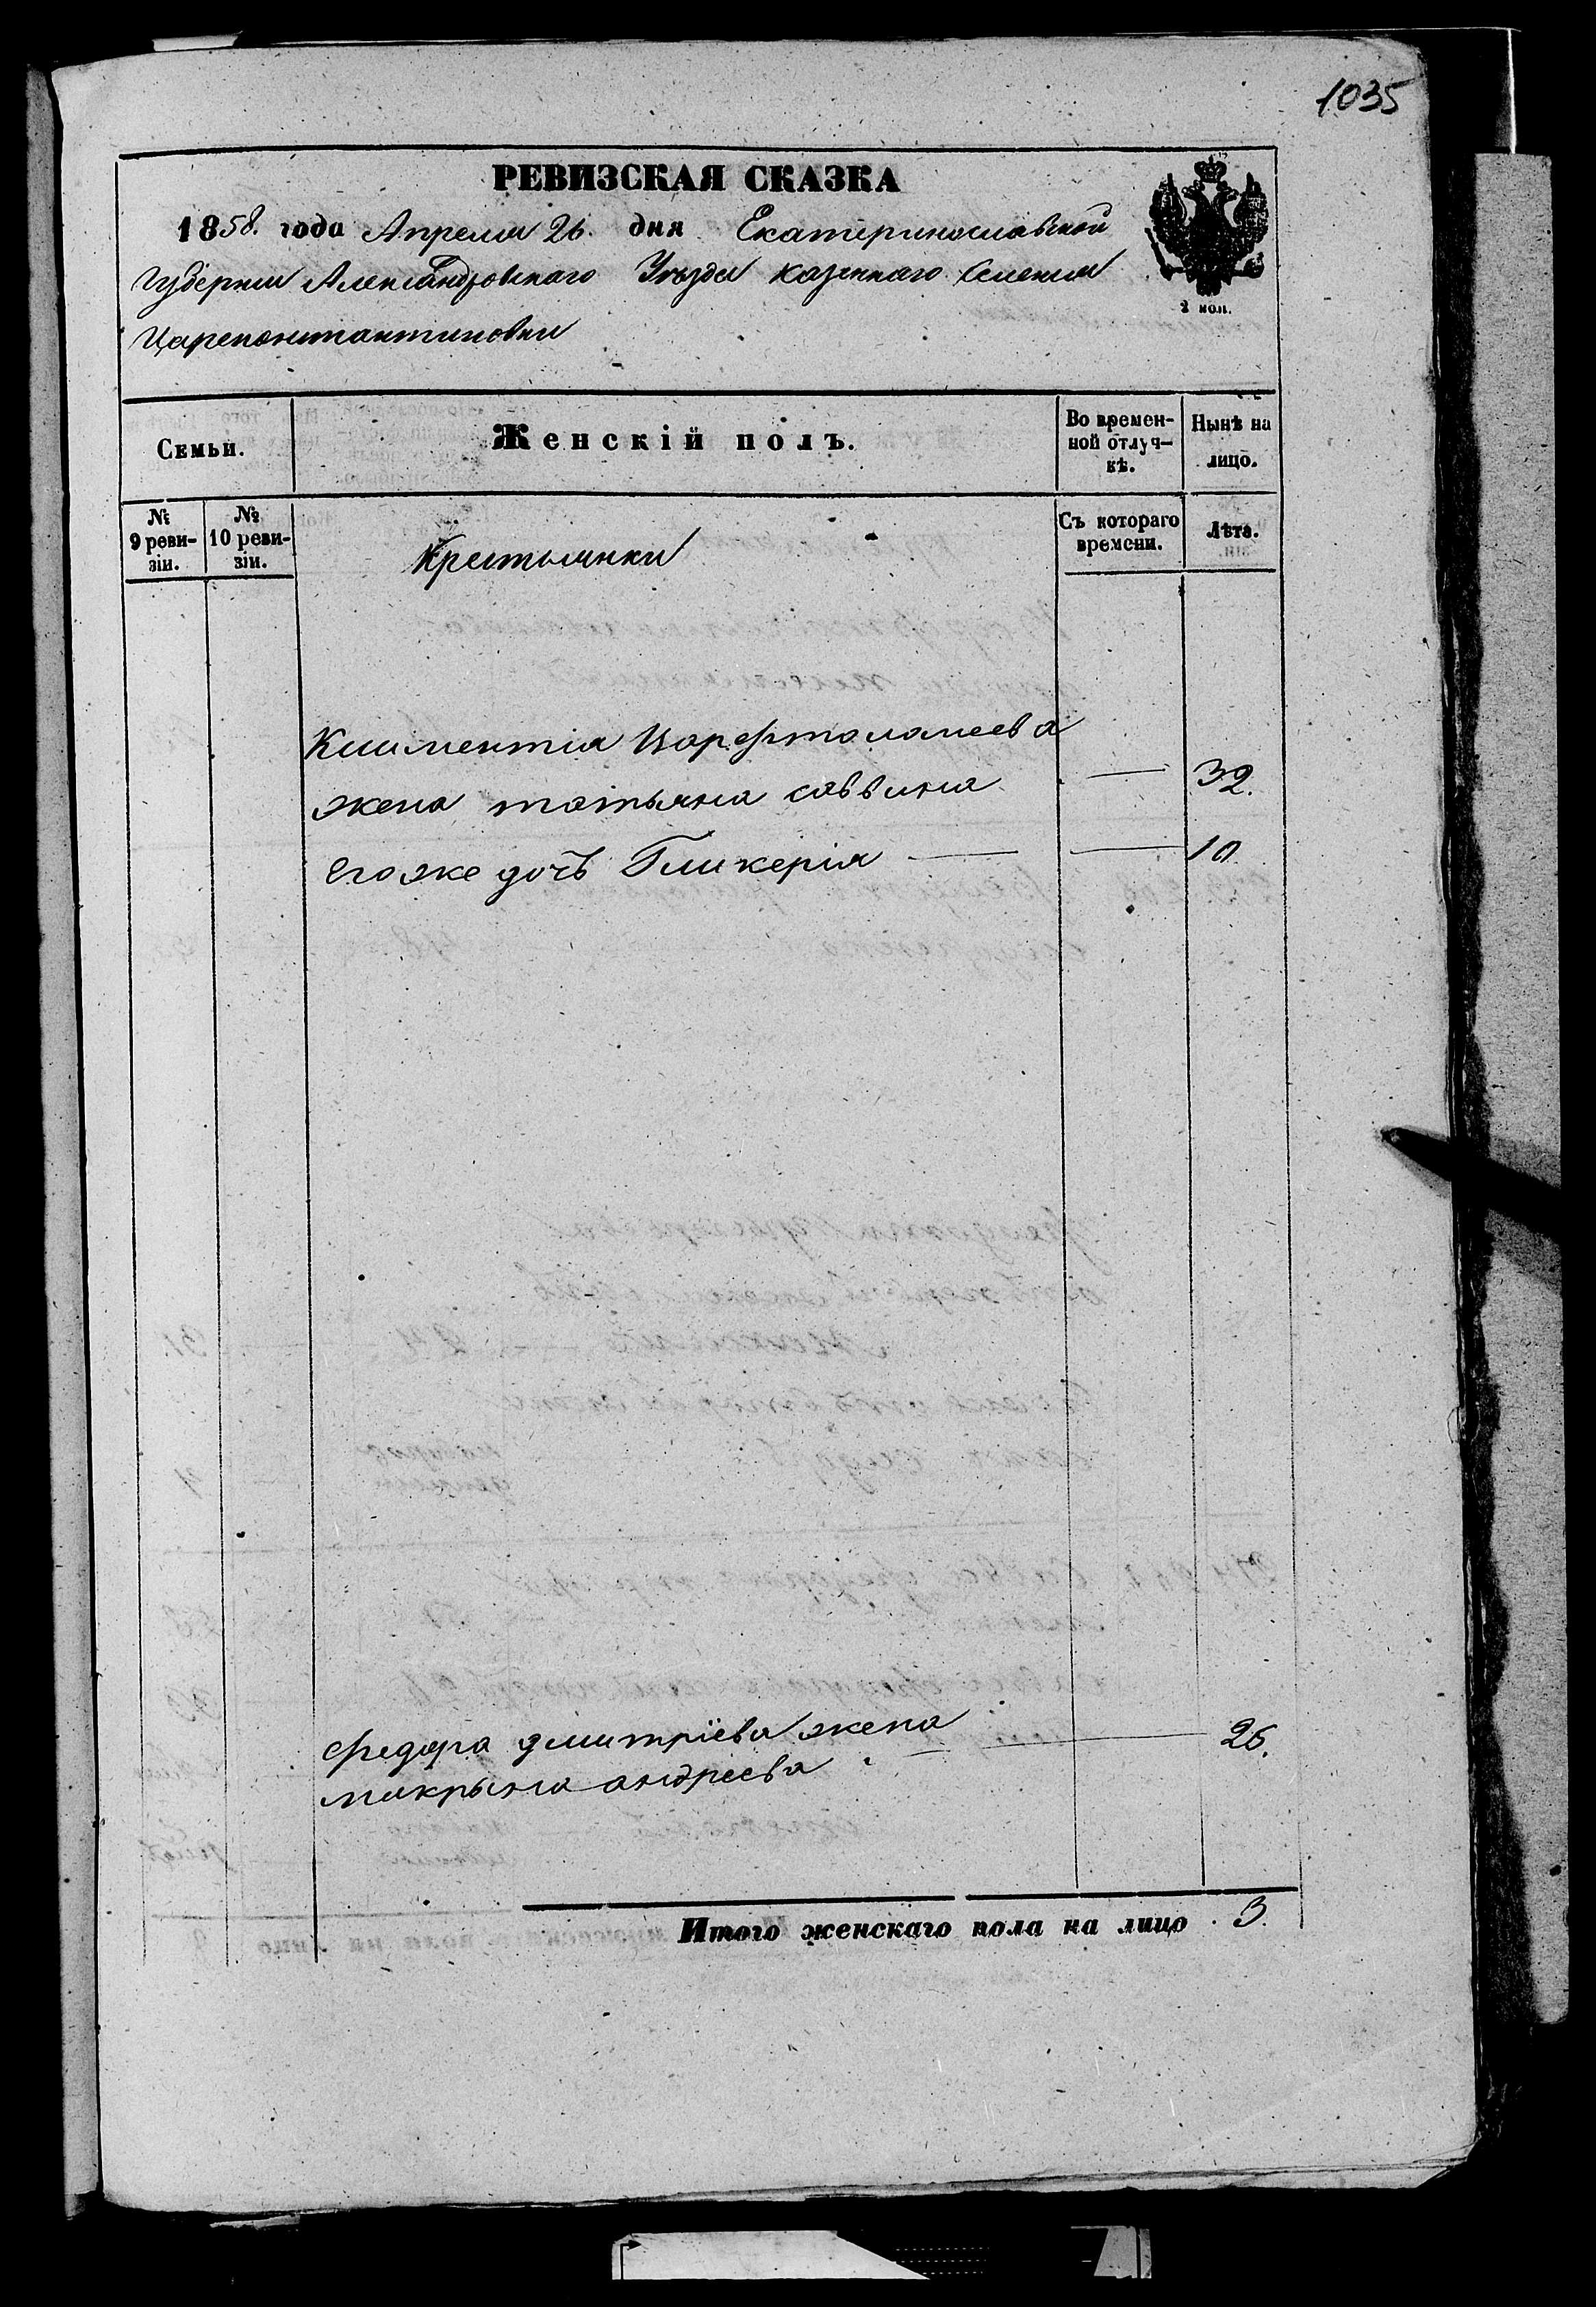 1035
РЕВИЗСКАЯ СКАЗКА
1858. года Апреля 26. дня Екатеринославской
Губернии Александровскаго Уѣзда казеннаго Селения
Цареконстантиновки
2 коп.
Семьи.
Женскій полъ.
Во времен-
ной отлуч-
кѣ.
Нынѣ на
лицо.
№
9 реви-
зіи.
№
10 реви-
зіи.
Крестьянки
Съ котораго
времени.
Лѣта.
Климентія Варфтоломеева
жена татьяна саввина — 32.
его же дочь Гликерія — — 10
федора дмитріева жена
макрына андреева — 26.
Итого женскаго пола на лицо 3.